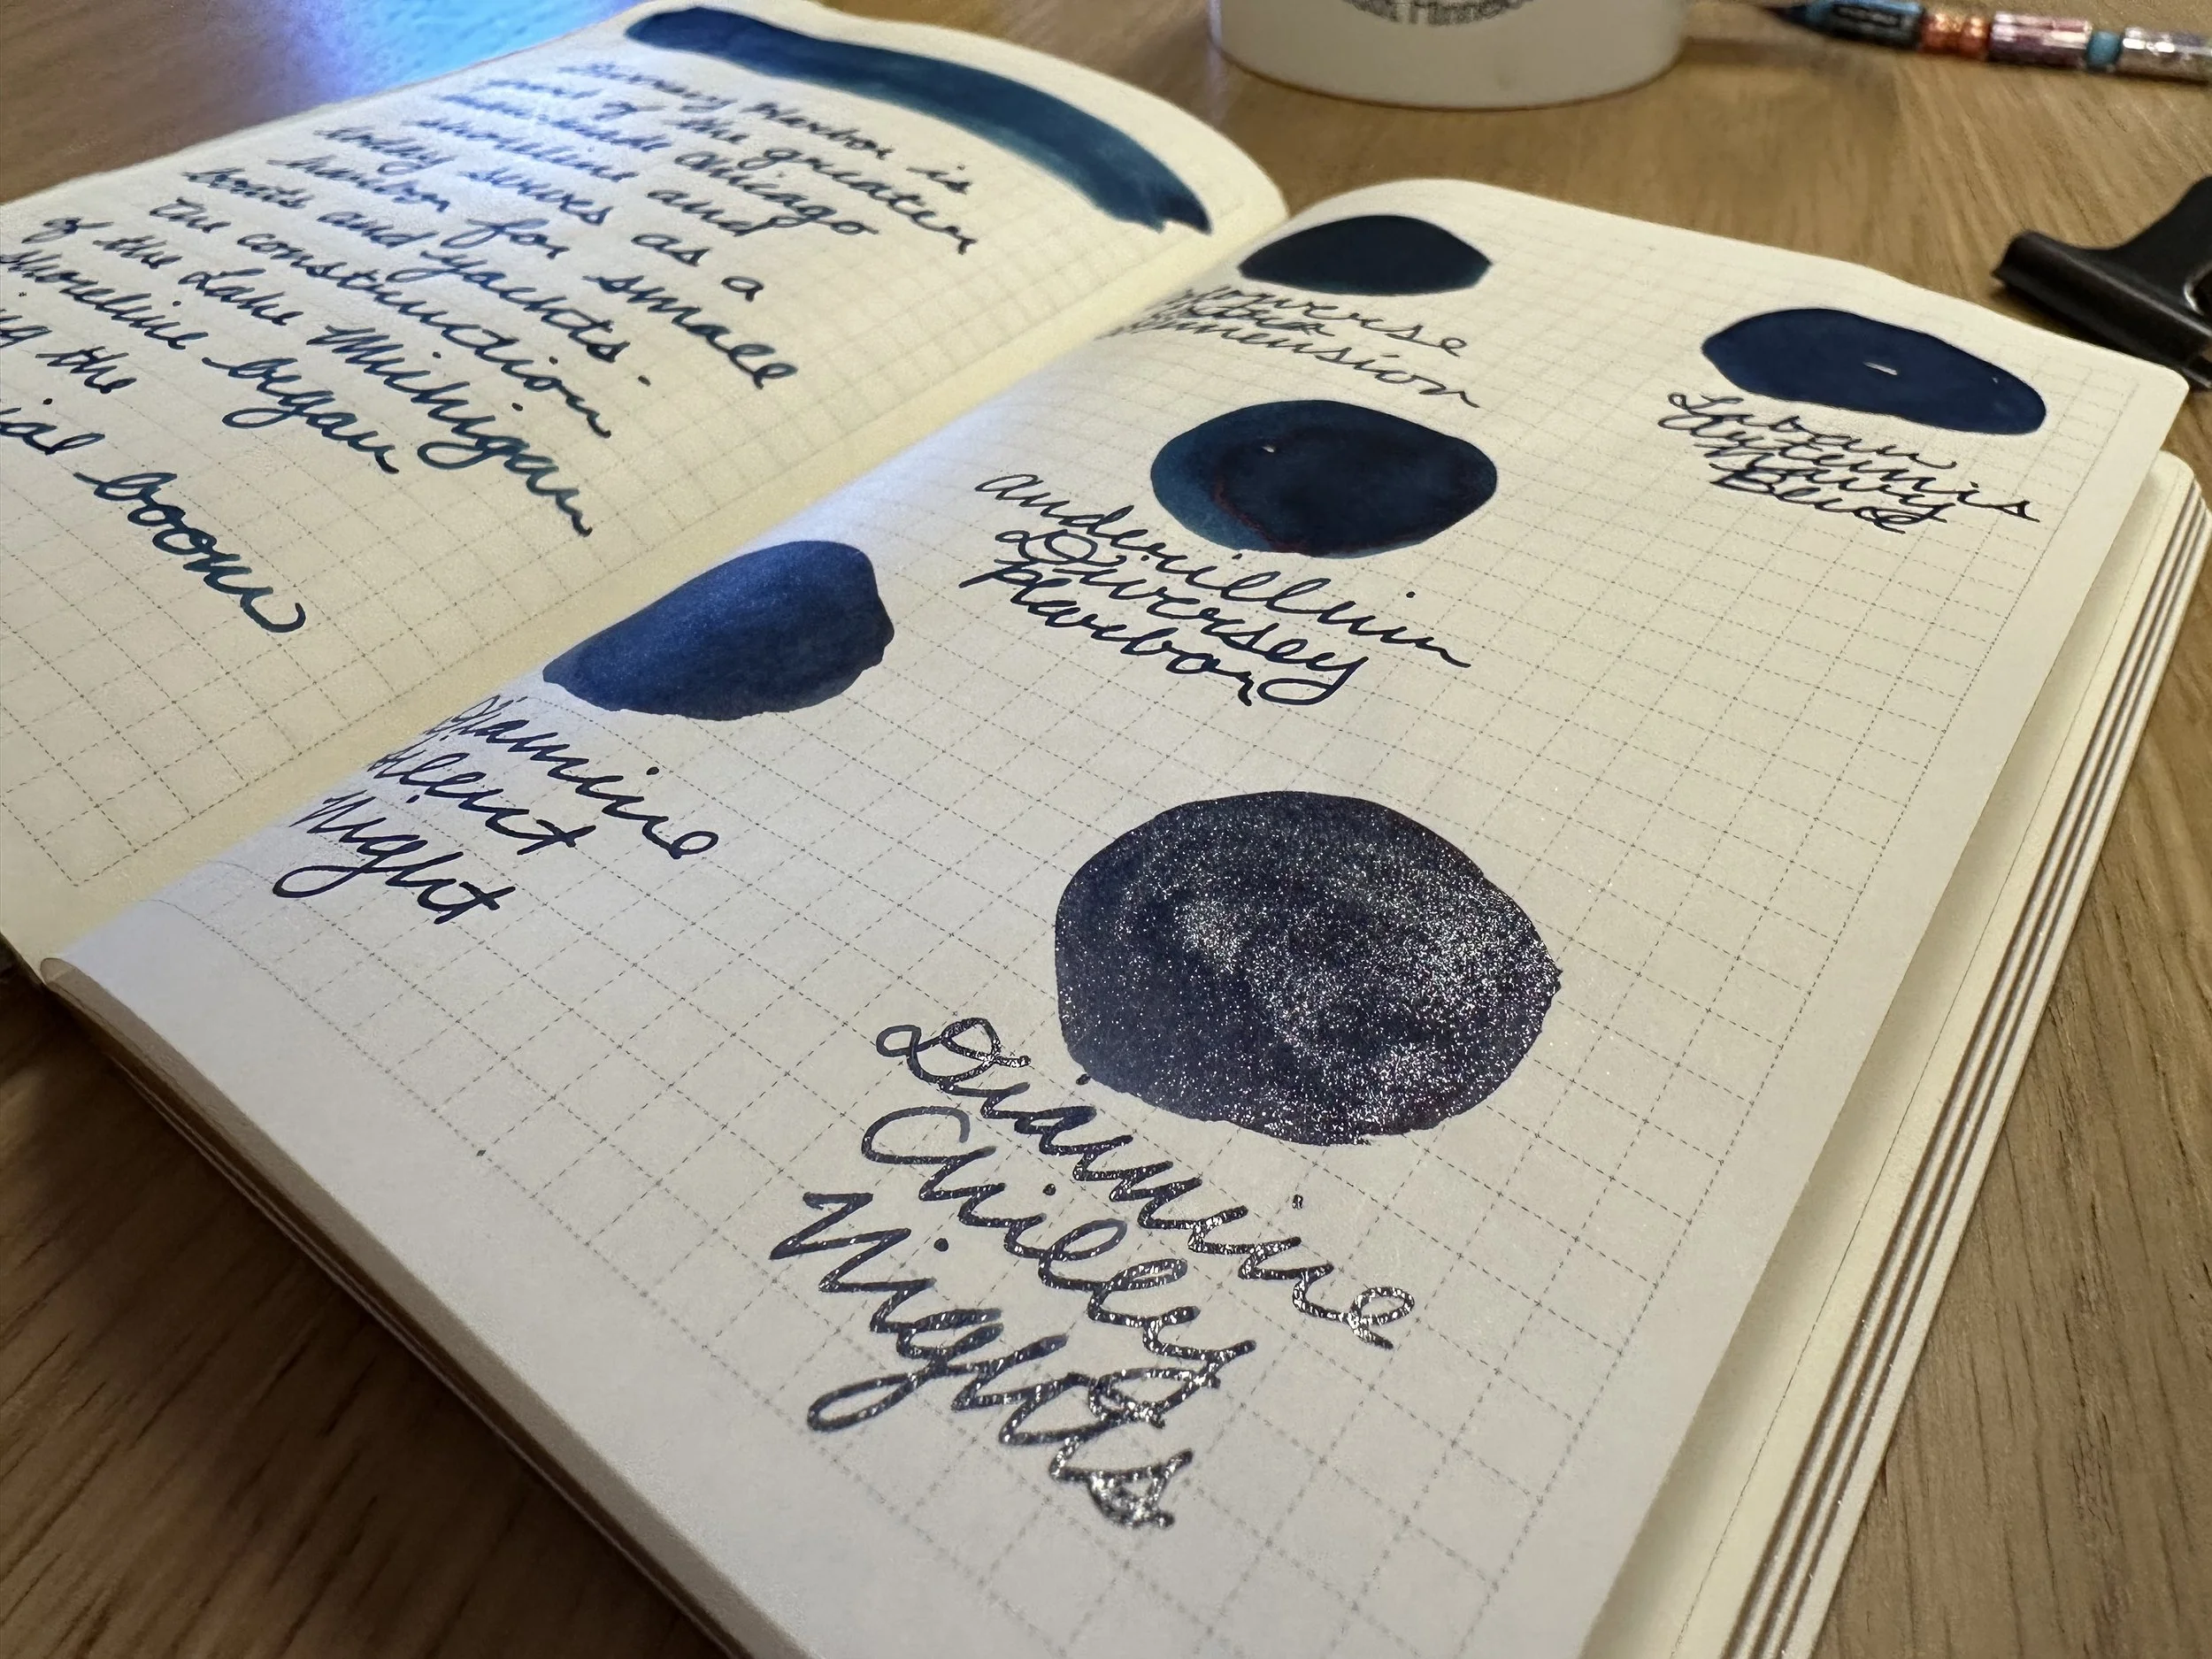 Diversey Harbor is
part of the greater
manmade Chicago
shoreline and
today serves as a
harbor for small
boats and yachts.
The construction
of the Lake Michigan
shoreline began
the
boom
Dimension
Laban
Artemis
Navy
Blue
anderillium
Diversey
Harbor
Diamine
Silent
Night
Diamine
Chilly
Nights